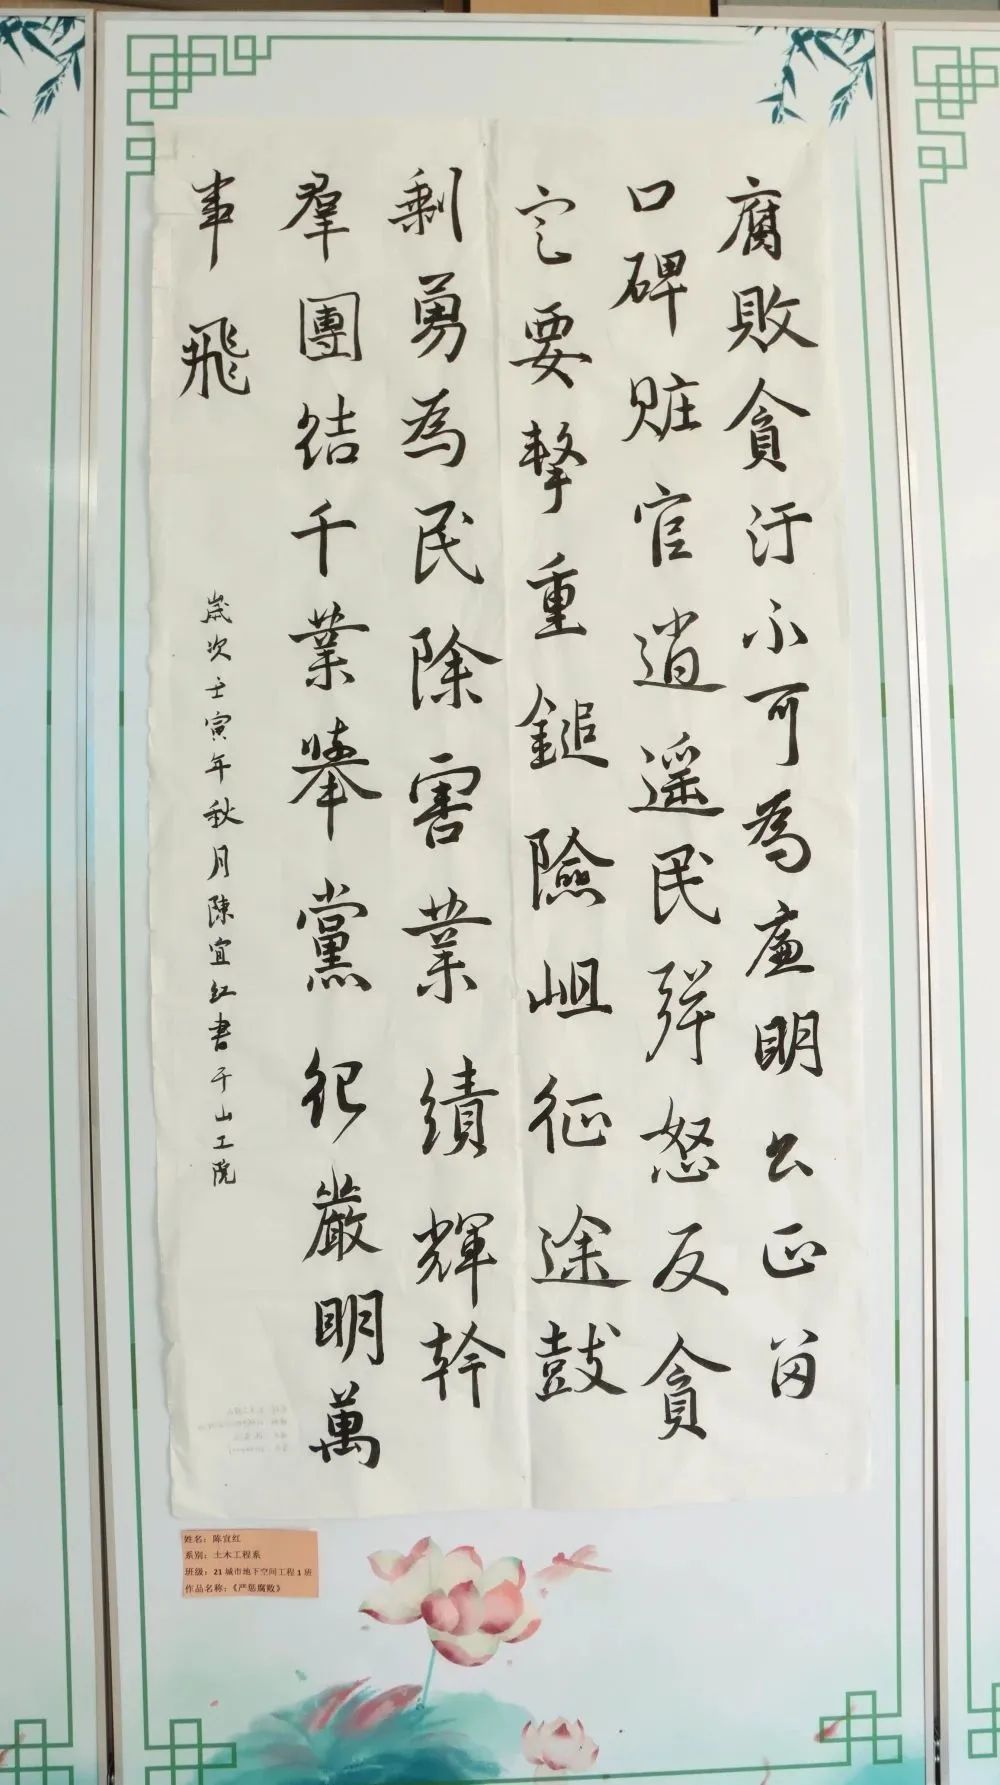 腐敗貪汙不可為廉明公正留
口碑赃官逍遥民弹怒反貪
定要擊重鎚險岨征途鼓
剩勇為民除害業績輝幹
羣團结千業舉黨紀嚴明萬
事飛
歲次壬寅年秋月陳宜红書于山工院
姓名：陈宜红
系别：土木工程系
班级：21城市地下空间工程1班
作品名称：《严惩腐败》